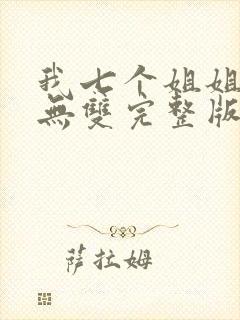 我七个姐姐
無雙完整版
萨拉姆